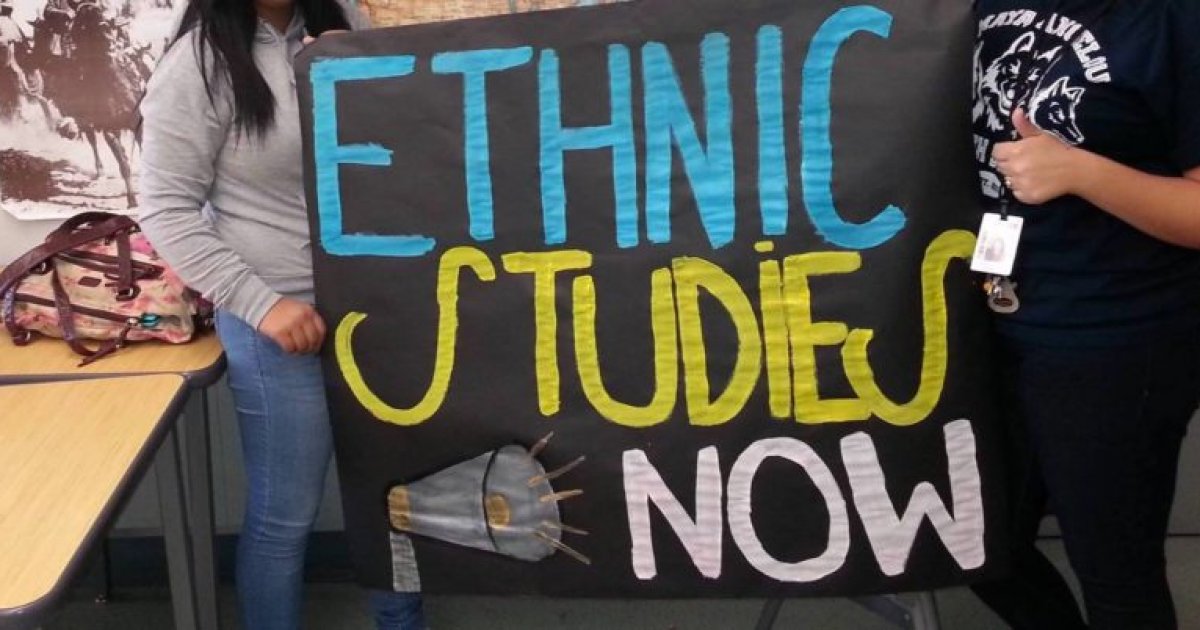 ETHNIC
STUDIES
NOW